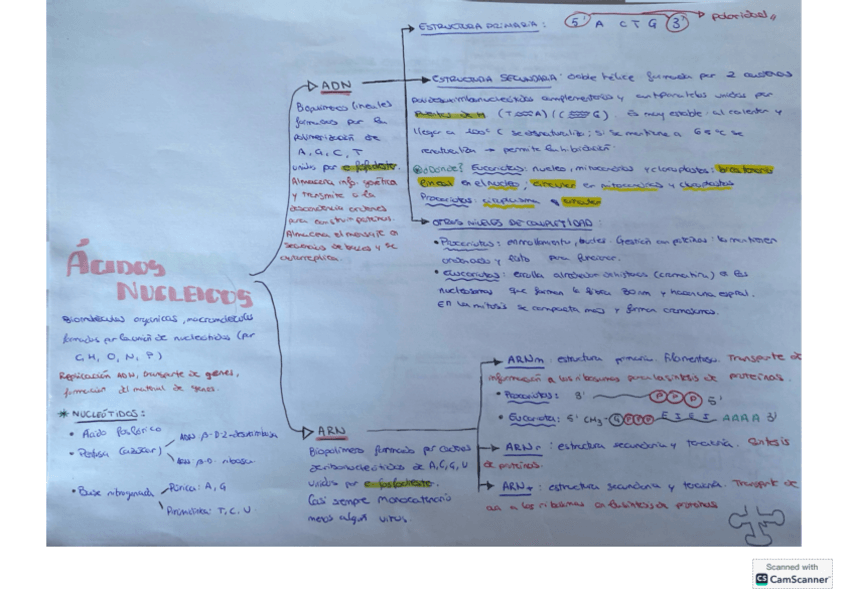 ÁCIDOS
NUCLEICOS
Biomoléculas orgánicas, macromoléculas
formadas por la unión de nucleótidos (por
C, H, O, N, P)
Replicación ADN, transporte de genes,
formación del material de genes.
* NUCLEÓTIDOS:
• Ácido fosfórico
• Pentosa (azúcar)
ADN: β-D-2-desoxirribosa
ARN: β-D-ribosa
• Base nitrogenada
Púrica: A, G
Pirimidínica: T, C, U
ADN
Biopolímeros lineales
formados por la
polimerización de
A, G, C, T
unidos por e. fosfodiester.
Almacena info. genética
y transmite a la
descendencia órdenes
para construir proteínas.
Almacena el mensaje en
secuencias de bases y se
autorreplica.
ESTRUCTURA PRIMARIA: 5' A C T G 3' Polaridad.
ESTRUCTURA SECUNDARIA: doble hélice formada por 2 cadenas
complementarias y antiparalelas unidas por
puentes de H (T A) (C G). Es muy estable al calentar y
llegar a 100º C se desnaturaliza; si se mantiene a 65ºC se
renaturaliza → permite la hibridación.
¿Dónde? Eucariotas: núcleo, mitocondrias y cloroplastos: bicatenario
lineal en el núcleo; circular en mitocondrias y cloroplastos
Procariotas: citoplasma circular
OTROS NIVELES DE COMPLEJIDAD:
• Procariotas: enrollamiento, bucles. con proteínas: lo mantienen
ordenado y listo para funcionar.
• Eucariotas: enrolla alrededor histonas (cromatina)
nucleosomas que forman la fibra 30nm y hacen una espiral.
En la mitosis se compacta más y forman cromosomas.
ARN
Biopolímero formado por cadenas
de ribonucleótidos de A, C, G, U
unidos por e. fosfodiester.
Casi siempre monocatenario
menos algún virus.
ARNm: estructura primaria filamentosa. Transporte de
información a los ribosomas para la síntesis de proteínas.
• Procariotas: 3' P P P 5'
• Eucariota: 5' CH3- G P P P E I E I AAAA 3'
ARNr: estructura secundaria y terciaria. Síntesis
de proteínas.
ARNt: estructura secundaria y terciaria. Transporte de
aa a los ribosomas en la síntesis de proteínas
Scanned with
CS CamScanner